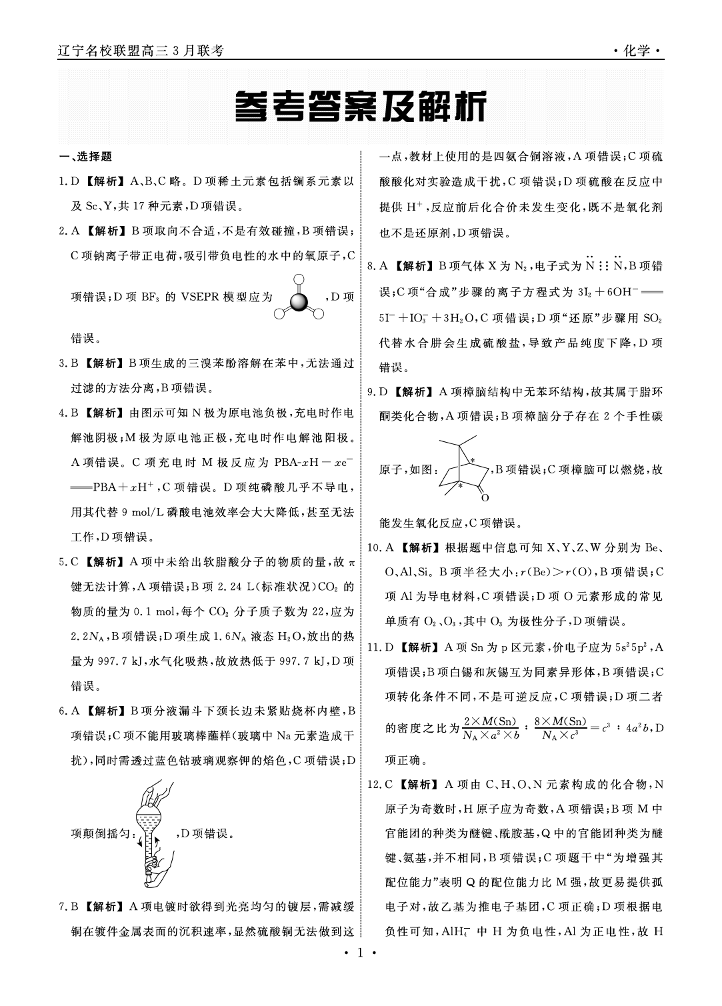 辽宁名校联盟高三3月联考
·化学·
参考答案及解析
一、选择题
1. D 【解析】A、B、C 略。D 项稀土元素包括镧系元素以
及 Sc、Y,共 17 种元素,D 项错误。
2. A 【解析】B 项取向不合适,不是有效碰撞,B 项错误;
C 项钠离子带正电荷,吸引带负电性的水中的氧原子,C
项错误;D 项 BF₃ 的 VSEPR 模型应为 ,D 项
错误。
3. B 【解析】B 项生成的三溴苯酚溶解在苯中,无法通过
过滤的方法分离,B 项错误。
4. B 【解析】由图示可知 N 极为原电池负极,充电时作电
解池阴极;M 极为原电池正极,充电时作电解池阳极。
A 项错误。C 项充电时 M 极反应为 PBA-xH－xe⁻
══PBA＋xH⁺,C 项错误。D 项纯磷酸几乎不导电,
用其代替 9 mol/L 磷酸电池效率会大大降低,甚至无法
工作,D 项错误。
5. C 【解析】A 项中未给出软脂酸分子的物质的量,故 π
键无法计算,A 项错误;B 项 2.24 L(标准状况)CO₂ 的
物质的量为 0.1 mol,每个 CO₂ 分子质子数为 22,应为
2.2N_A,B 项错误;D 项生成 1.6N_A 液态 H₂O,放出的热
量为 997.7 kJ,水气化吸热,故放热低于 997.7 kJ,D 项
错误。
6. A 【解析】B 项分液漏斗下颈长边未紧贴烧杯内壁,B
项错误;C 项不能用玻璃棒蘸样(玻璃中 Na 元素造成干
扰),同时需透过蓝色钴玻璃观察钾的焰色,C 项错误;D
项颠倒摇匀: ,D 项错误。
7. B 【解析】A 项电镀时欲得到光亮均匀的镀层,需减缓
铜在镀件金属表面的沉积速率,显然硫酸铜无法做到这
一点,教材上使用的是四氨合铜溶液,A 项错误;C 项硫
酸酸化对实验造成干扰,C 项错误;D 项硫酸在反应中
提供 H⁺,反应前后化合价未发生变化,既不是氧化剂
也不是还原剂,D 项错误。
8. A 【解析】B 项气体 X 为 N₂,电子式为 :N⋮⋮N:,B 项错
误;C 项“合成”步骤的离子方程式为 3I₂＋6OH⁻══
5I⁻＋IO₃⁻＋3H₂O,C 项错误;D 项“还原”步骤用 SO₂
代替水合肼会生成硫酸盐,导致产品纯度下降,D 项
错误。
9. D 【解析】A 项樟脑结构中无苯环结构,故其属于脂环
酮类化合物,A 项错误;B 项樟脑分子存在 2 个手性碳
原子,如图: * * O ,B 项错误;C 项樟脑可以燃烧,故
能发生氧化反应,C 项错误。
10. A 【解析】根据题中信息可知 X、Y、Z、W 分别为 Be、
O、Al、Si。B 项半径大小:r(Be)＞r(O),B 项错误;C
项 Al 为导电材料,C 项错误;D 项 O 元素形成的常见
单质有 O₂、O₃,其中 O₃ 为极性分子,D 项错误。
11. D 【解析】A 项 Sn 为 p 区元素,价电子应为 5s²5p²,A
项错误;B 项白锡和灰锡互为同素异形体,B 项错误;C
项转化条件不同,不是可逆反应,C 项错误;D 项二者
的密度之比为 2×M(Sn)/(N_A×a²×b) : 8×M(Sn)/(N_A×c³) ＝c³ : 4a²b,D
项正确。
12. C 【解析】A 项由 C、H、O、N 元素构成的化合物,N
原子为奇数时,H 原子应为奇数,A 项错误;B 项 M 中
官能团的种类为醚键、酰胺基,Q 中的官能团种类为醚
键、氨基,并不相同,B 项错误;C 项题干中“为增强其
配位能力”表明 Q 的配位能力比 M 强,故更易提供孤
电子对,故乙基为推电子基团,C 项正确;D 项根据电
负性可知,AlH₄⁻ 中 H 为负电性,Al 为正电性,故 H
· 1 ·